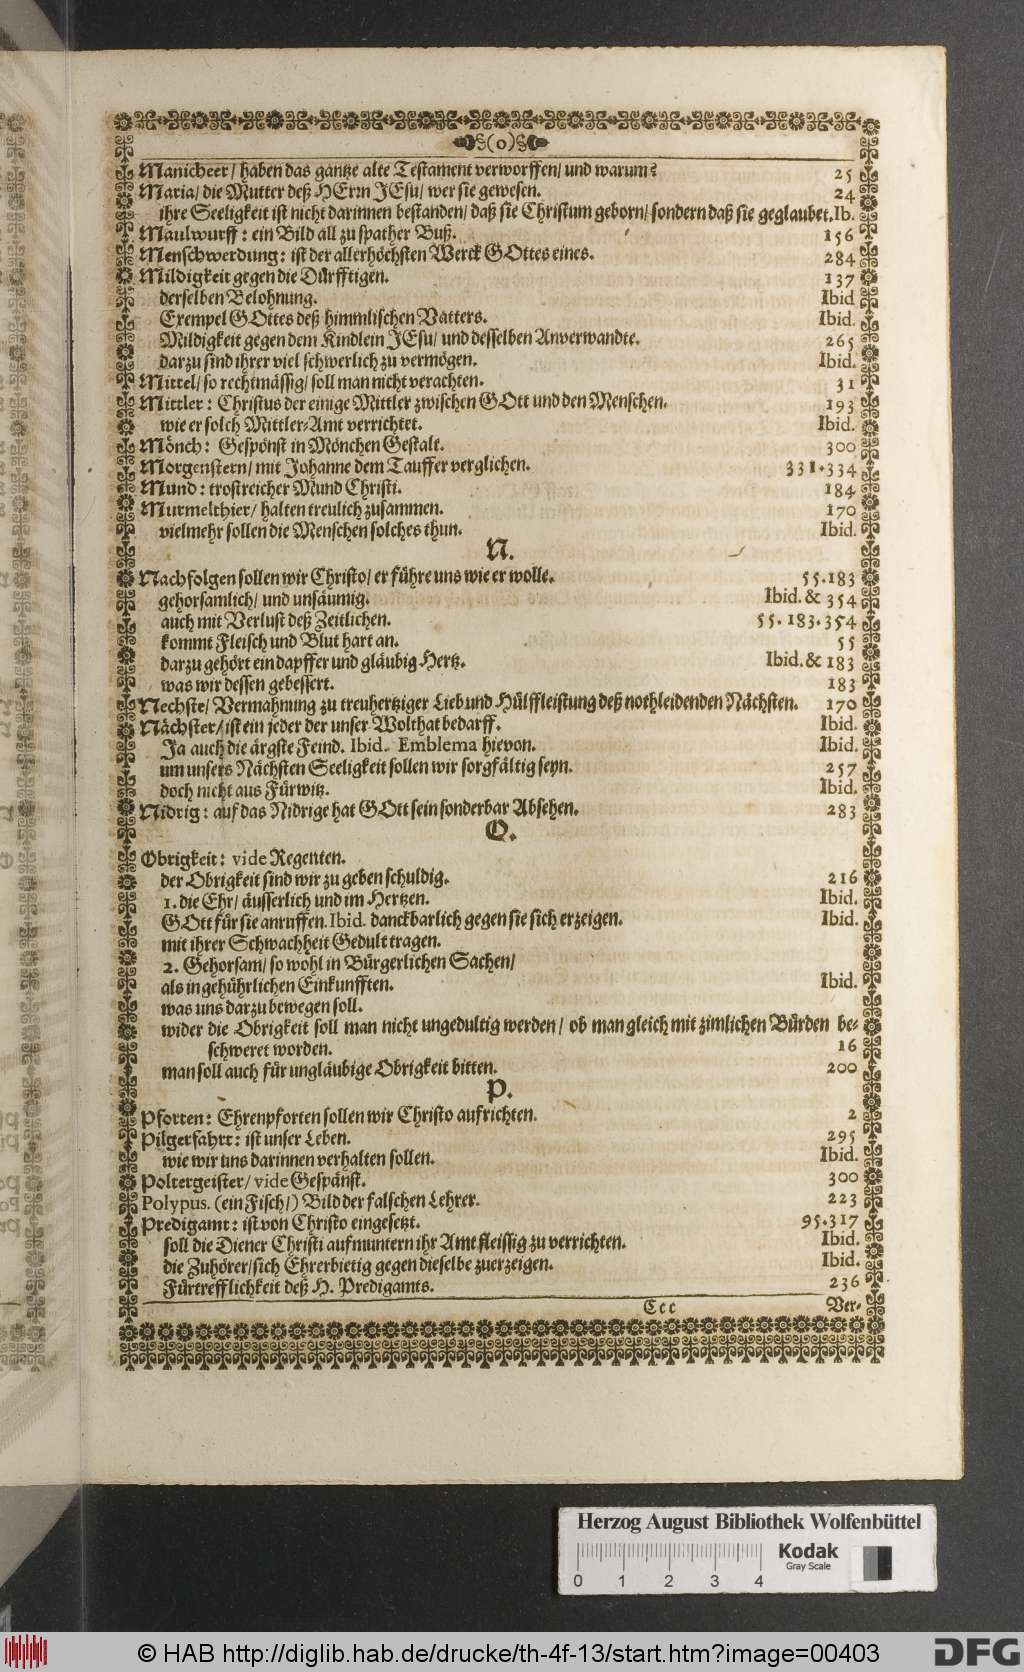 (o)
Manicheer/ haben das gantze alte Testament verworffen/ und warum? 25
Maria/ die Mutter deß HErrn JEsu/ wer sie gewesen. 24
ihre Seeligkeit ist nicht darinnen bestanden/ daß sie Christum geborn/ sondern daß sie geglaubet. Ib.
Maulwurff: ein Bild all zu spather Buß. 156
Menschwerdung: ist der allerhöchsten Werck GOttes eines. 284
Mildigkeit gegen die Dürfftigen. 137
derselben Belohnung. Ibid
Exempel GOttes deß himmlischen Vatters. Ibid.
Mildigkeit gegen dem Kindlein JEsu/ und desselben Anverwandte. 265
darzu sind ihrer viel schwerlich zu vermögen. Ibid.
Mittel/ so rechtmässig/ soll man nicht verachten. 31
Mittler: Christus der einige Mittler zwischen GOtt und den Menschen. 193
wie er solch Mittler-Amt verrichtet. Ibid.
Mönch: Gespönst in Mönchen Gestalt. 300
Morgenstern/ mit Johanne dem Tauffer verglichen. 331.334
Mund: trostreicher Mund Christi. 184
Murmelthier/ halten treulich zusammen. 170
vielmehr sollen die Menschen solches thun. Ibid.
N.
Nachfolgen sollen wir Christo/ er führe uns wie er wolle. 55.183
gehorsamlich/ und unsäumig. Ibid. & 354
auch mit Verlust deß Zeitlichen. 55.183.354
kommt Fleisch und Blut hart an. 55
darzu gehört ein dapffer und gläubig Hertz. Ibid. & 183
was wir dessen gebessert. 183
Nechste/ Vermahnung zu treuhertziger Lieb und Hülffleistung deß nothleidenden Nächsten. 170
Nächster/ ist ein jeder der unser Wolthat bedarff. Ibid.
Ja auch die ärgste Feind. Ibid. Emblema hievon. Ibid.
um unsers Nächsten Seeligkeit sollen wir sorgfältig seyn. 257
doch nicht aus Fürwitz. Ibid.
Nidrig: auf das Nidrige hat GOtt sein sonderbar Absehen. 283
O.
Obrigkeit: vide Regenten.
der Obrigkeit sind wir zu geben schuldig. 216
1. die Ehr/ äusserlich und im Hertzen. Ibid.
GOtt für sie anruffen. Ibid. danckbarlich gegen sie sich erzeigen. Ibid.
mit ihrer Schwachheit Gedult tragen.
2. Gehorsam/ so wohl in Bürgerlichen Sachen/
als in gebührlichen Einkunfften. Ibid.
was uns darzu bewegen soll.
wider die Obrigkeit soll man nicht ungedultig werden/ ob man gleich mit zimlichen Bürden be-
schweret worden. 16
man soll auch für ungläubige Obrigkeit bitten. 200
P.
Pforten: Ehrenpforten sollen wir Christo aufrichten. 2
Pilgerfahrt: ist unser Leben. 295
wie wir uns darinnen verhalten sollen. Ibid.
Poltergeister/ vide Gespänst. 300
Polypus. (ein Fisch/) Bild der falschen Lehrer. 223
Predigamt: ist von Christo eingesetzt. 95.317
soll die Diener Christi aufmuntern ihr Amt fleissig zu verrichten. Ibid.
die Zuhörer/ sich Ehrerbietig gegen dieselbe zuerzeigen. Ibid.
Fürtrefflichkeit deß H. Predigamts. 236
Ccc Ver-
Herzog August Bibliothek Wolfenbüttel
0 1 2 3 4
Kodak
Gray Scale
© HAB http://diglib.hab.de/drucke/th-4f-13/start.htm?image=00403
DFG